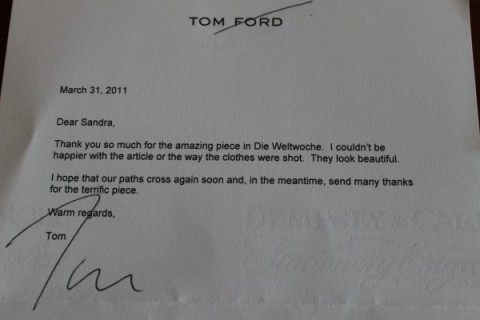 TOM FORD
March 31, 2011
Dear Sandra,
Thank you so much for the amazing piece in Die Weltwoche. I couldn't be
happier with the article or the way the clothes were shot. They look beautiful.
I hope that our paths cross again soon and, in the meantime, send many thanks
for the terrific piece.
Warm regards,
Tom
Tom